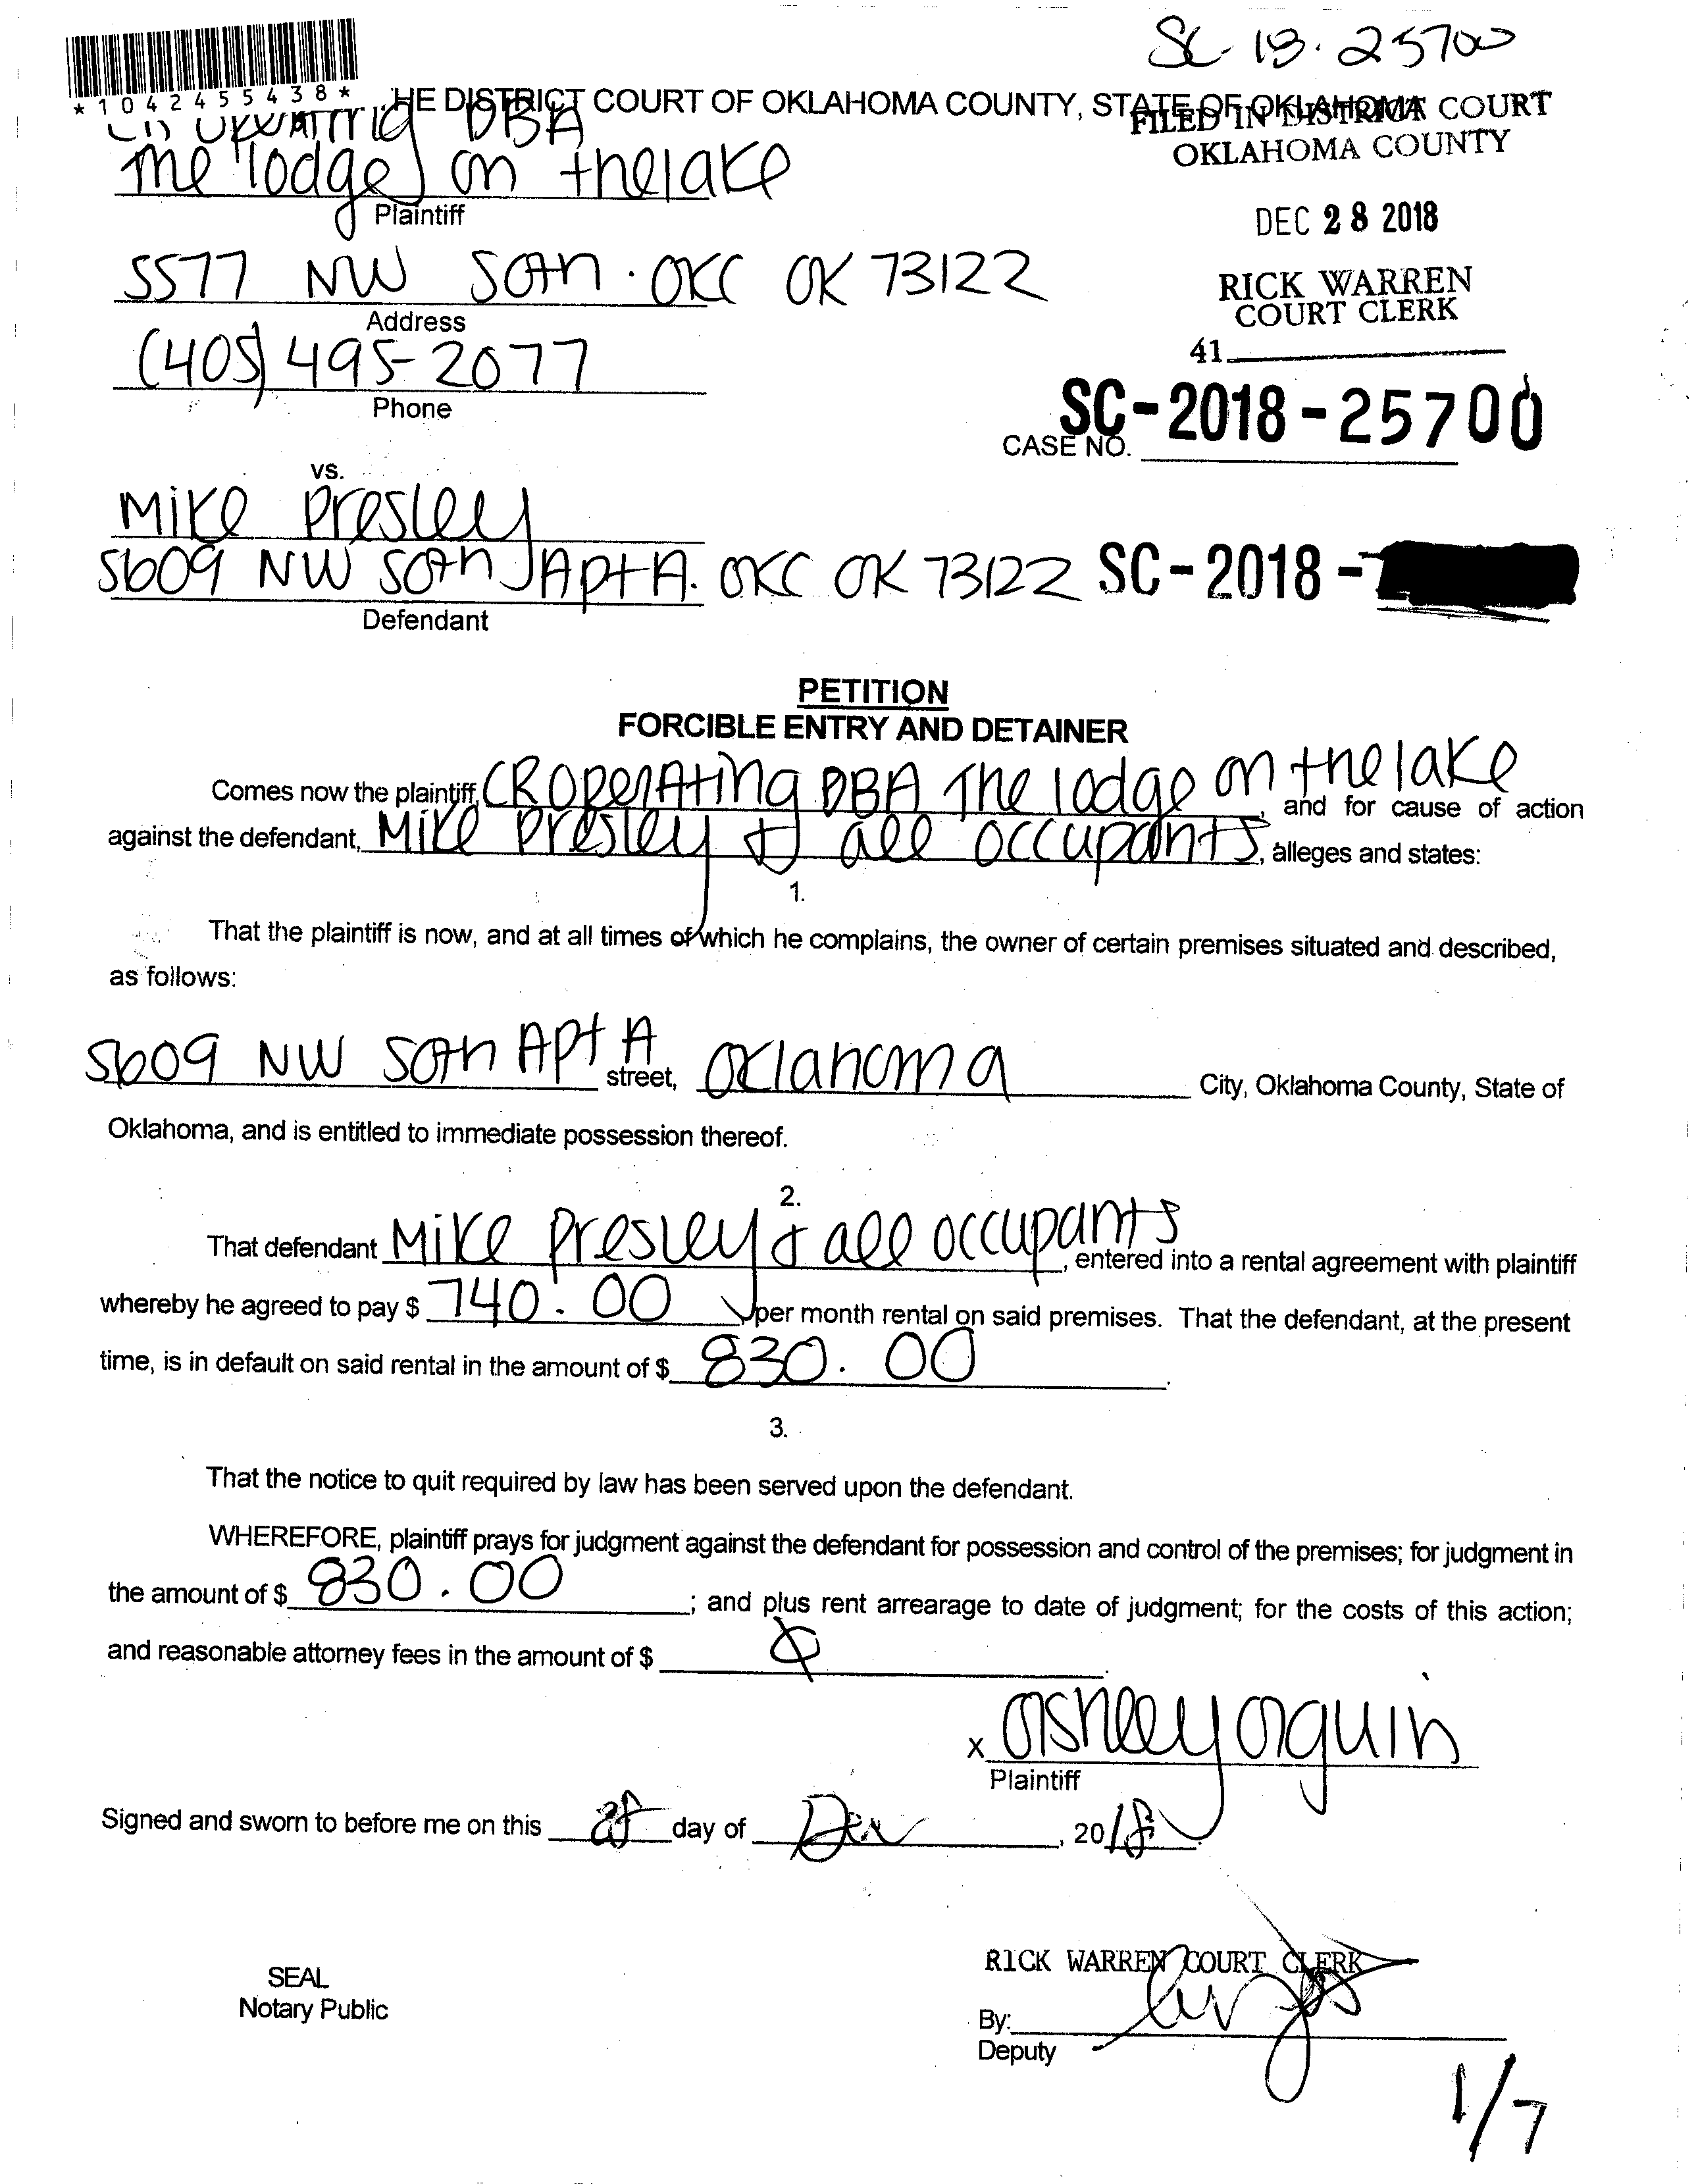 SC-18-25700
*1042455438*
HE DISTRICT COURT OF OKLAHOMA COUNTY, STATE OF OKLAHOMA
FILED IN DISTRICT COURT
OKLAHOMA COUNTY
DBA
The lodge on thelake
Plaintiff
DEC 28 2018
5577 NW 50th. OKC OK 73122
Address
RICK WARREN
COURT CLERK
(405) 495-2077
Phone
41
SC-2018-25700
CASE NO.
vs.
Mike Presley
5609 NW 50th Apt A. OKC OK 73122 SC-2018-
Defendant
PETITION
FORCIBLE ENTRY AND DETAINER
Comes now the plaintiff, CR Operating DBA The lodge on thelake, and for cause of action
against the defendant, Mike Presley & all occupants, alleges and states:
1.
That the plaintiff is now, and at all times of which he complains, the owner of certain premises situated and described,
as follows:
5609 NW 50th Apt A street, Oklahoma City, Oklahoma County, State of
Oklahoma, and is entitled to immediate possession thereof.
2.
That defendant Mike Presley & all occupants, entered into a rental agreement with plaintiff
whereby he agreed to pay $ 740.00 per month rental on said premises. That the defendant, at the present
time, is in default on said rental in the amount of $ 830.00.
3.
That the notice to quit required by law has been served upon the defendant.
WHEREFORE, plaintiff prays for judgment against the defendant for possession and control of the premises; for judgment in
the amount of $ 830.00; and plus rent arrearage to date of judgment; for the costs of this action;
and reasonable attorney fees in the amount of $ Ø.
x Ashley Olguin
Plaintiff
Signed and sworn to before me on this 28 day of Dec, 2018.
RICK WARREN COURT CLERK
SEAL
Notary Public
By:
Deputy
1/7